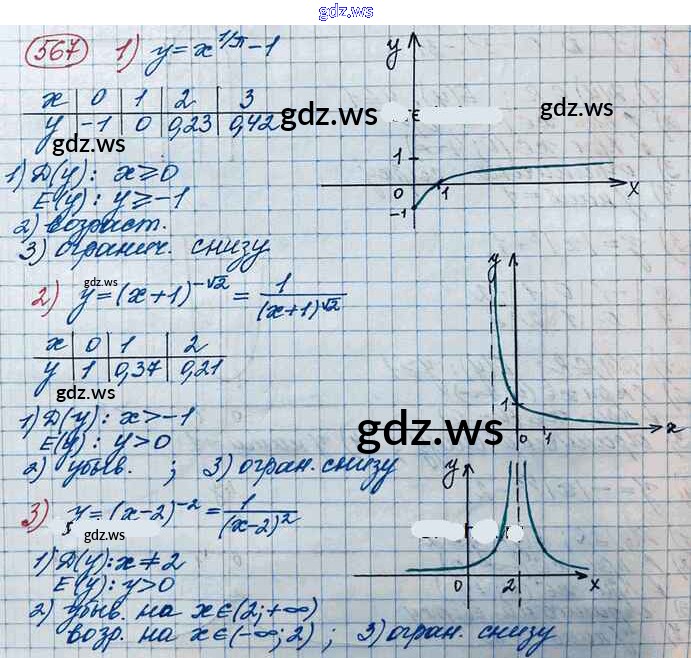 gdz.ws
567 1) y = x^(1/π) - 1
x 0 1 2 3
y -1 0 0,23 0,42
gdz.ws
gdz.ws
gdz.ws
y
1
0 1 x
-1
1) D(y): x ≥ 0
E(y): y ≥ -1
2) возраст.
3) огранич. снизу
gdz.ws
2) y = (x+1)^(-√2) = 1/(x+1)^(√2)
x 0 1 2
y 1 0,37 0,21
gdz.ws
y
1
0 1 x
1) D(y): x > -1
E(y): y > 0
gdz.ws
2) убыв. ; 3) огран. снизу
3) y = (x-2)^(-2) = 1/(x-2)^2
gdz.ws
y
0 2 x
1) D(y): x ≠ 2
E(y): y > 0
2) убыв. на x∈(2;+∞)
возр. на x∈(-∞;2) ; 3) огран. снизу